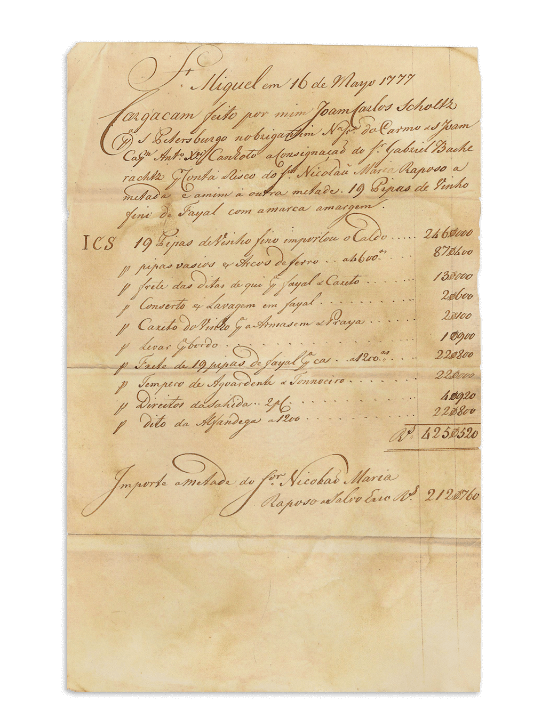 Sr. Miguel em 16 de Mayo 1777
Cargacam feito por mim Joam Carlos Scholtz
pa. S Petersburgo no brigantim N. Sra. do Carmo e S Joam
Capn. Anto. Xer. Canhoto a Consignação do Sr. Gabriel Bache
rachtz Conta Risco do Sr. Nicolau Maria Raposo a
metade e amim á outra metade. 19 Pipas de Vinho
fino do Fayal com a marca a margem.
ICS 19 Pipas de Vo. fino importou o Caldo .... 246$000
p pipas vasias & Arcos de ferro .. a 4600rs. 87$400
p frete das ditas de que pa. fayal e Careto ... 13$000
p Conserto & Lavagem em fayal ........ 2$600
p Careto do Vinho pa. a Armasem e Praya ... 2$100
p Levar pa. bordo ........ 1$900
p Frete de 19 pipas de fayal pa. cas .. a 1200rs. 22$800
p Tempero de Agoardente e Tonnoeiro ..... 22$000
p Direitos da Sahida .. 2 pC ........ 4$920
p dito da Alfandega a 1200 ........ 22$800
Rs. 425$520
Importe a Metade do Sor. Nicolao Maria
Raposo e Salvo Erro Rs. 212$760